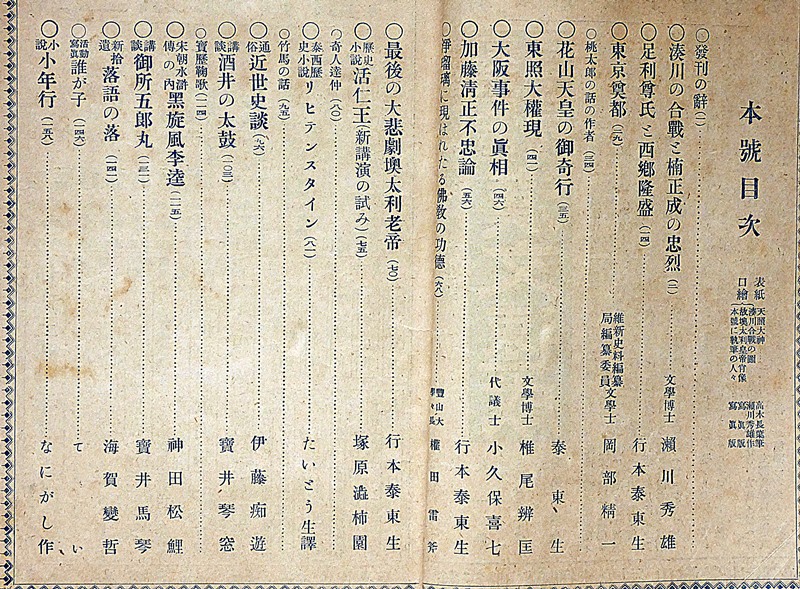 本號目次
表紙 天照大神 高木長葉筆
口繪 湊川合戰の圖 瀬川秀雄作
故墺太利皇帝肖像 寫眞版
本號に執筆の人々 寫眞版
○發刊の辭(一)
○湊川の合戰と楠正成の忠烈(一) 文學博士 瀬川秀雄
○足利尊氏と西郷隆盛(一四) 行本泰東生
○東京奠都(二九) 維新史料編纂局編纂委員 文學士 岡部精一
○桃太郎の話の作者(三四)
○花山天皇の御奇行(三五) 泰東生
○東照大權現(四一) 文學博士 椎尾辨匡
○大阪事件の眞相(四六) 代議士 小久保喜七
○加藤清正不忠論(五六) 行本泰東生
○淨瑠璃に現はれたる佛敎の功德(六八) 豐山大學長 權田雷斧
○最後の大悲劇墺太利老帝(七〇) 行本泰東生
○歷史小說 活仁王(新講演の試み)(七五) 塚原澁柿園
○奇人達仲(八〇)
○泰西歷史小說 リヒテンスタイン(八一) たいとう生譯
○竹馬の話(九五)
○通俗 近世史談(九六) 伊藤痴遊
○講談 酒井の太鼓(一〇三) 寶井琴窓
○寶曆鞠歌(一二四)
○宋朝水滸傳の內 黑旋風李逵(一二五) 神田松鯉
○講談 御所五郎丸(一三二) 寶井馬琴
○新拾遺 落語の落(一四四) 海賀變哲
○活動寫眞 誰が子(一四六) てい、
○小說 小年行(一五八) なにがし作